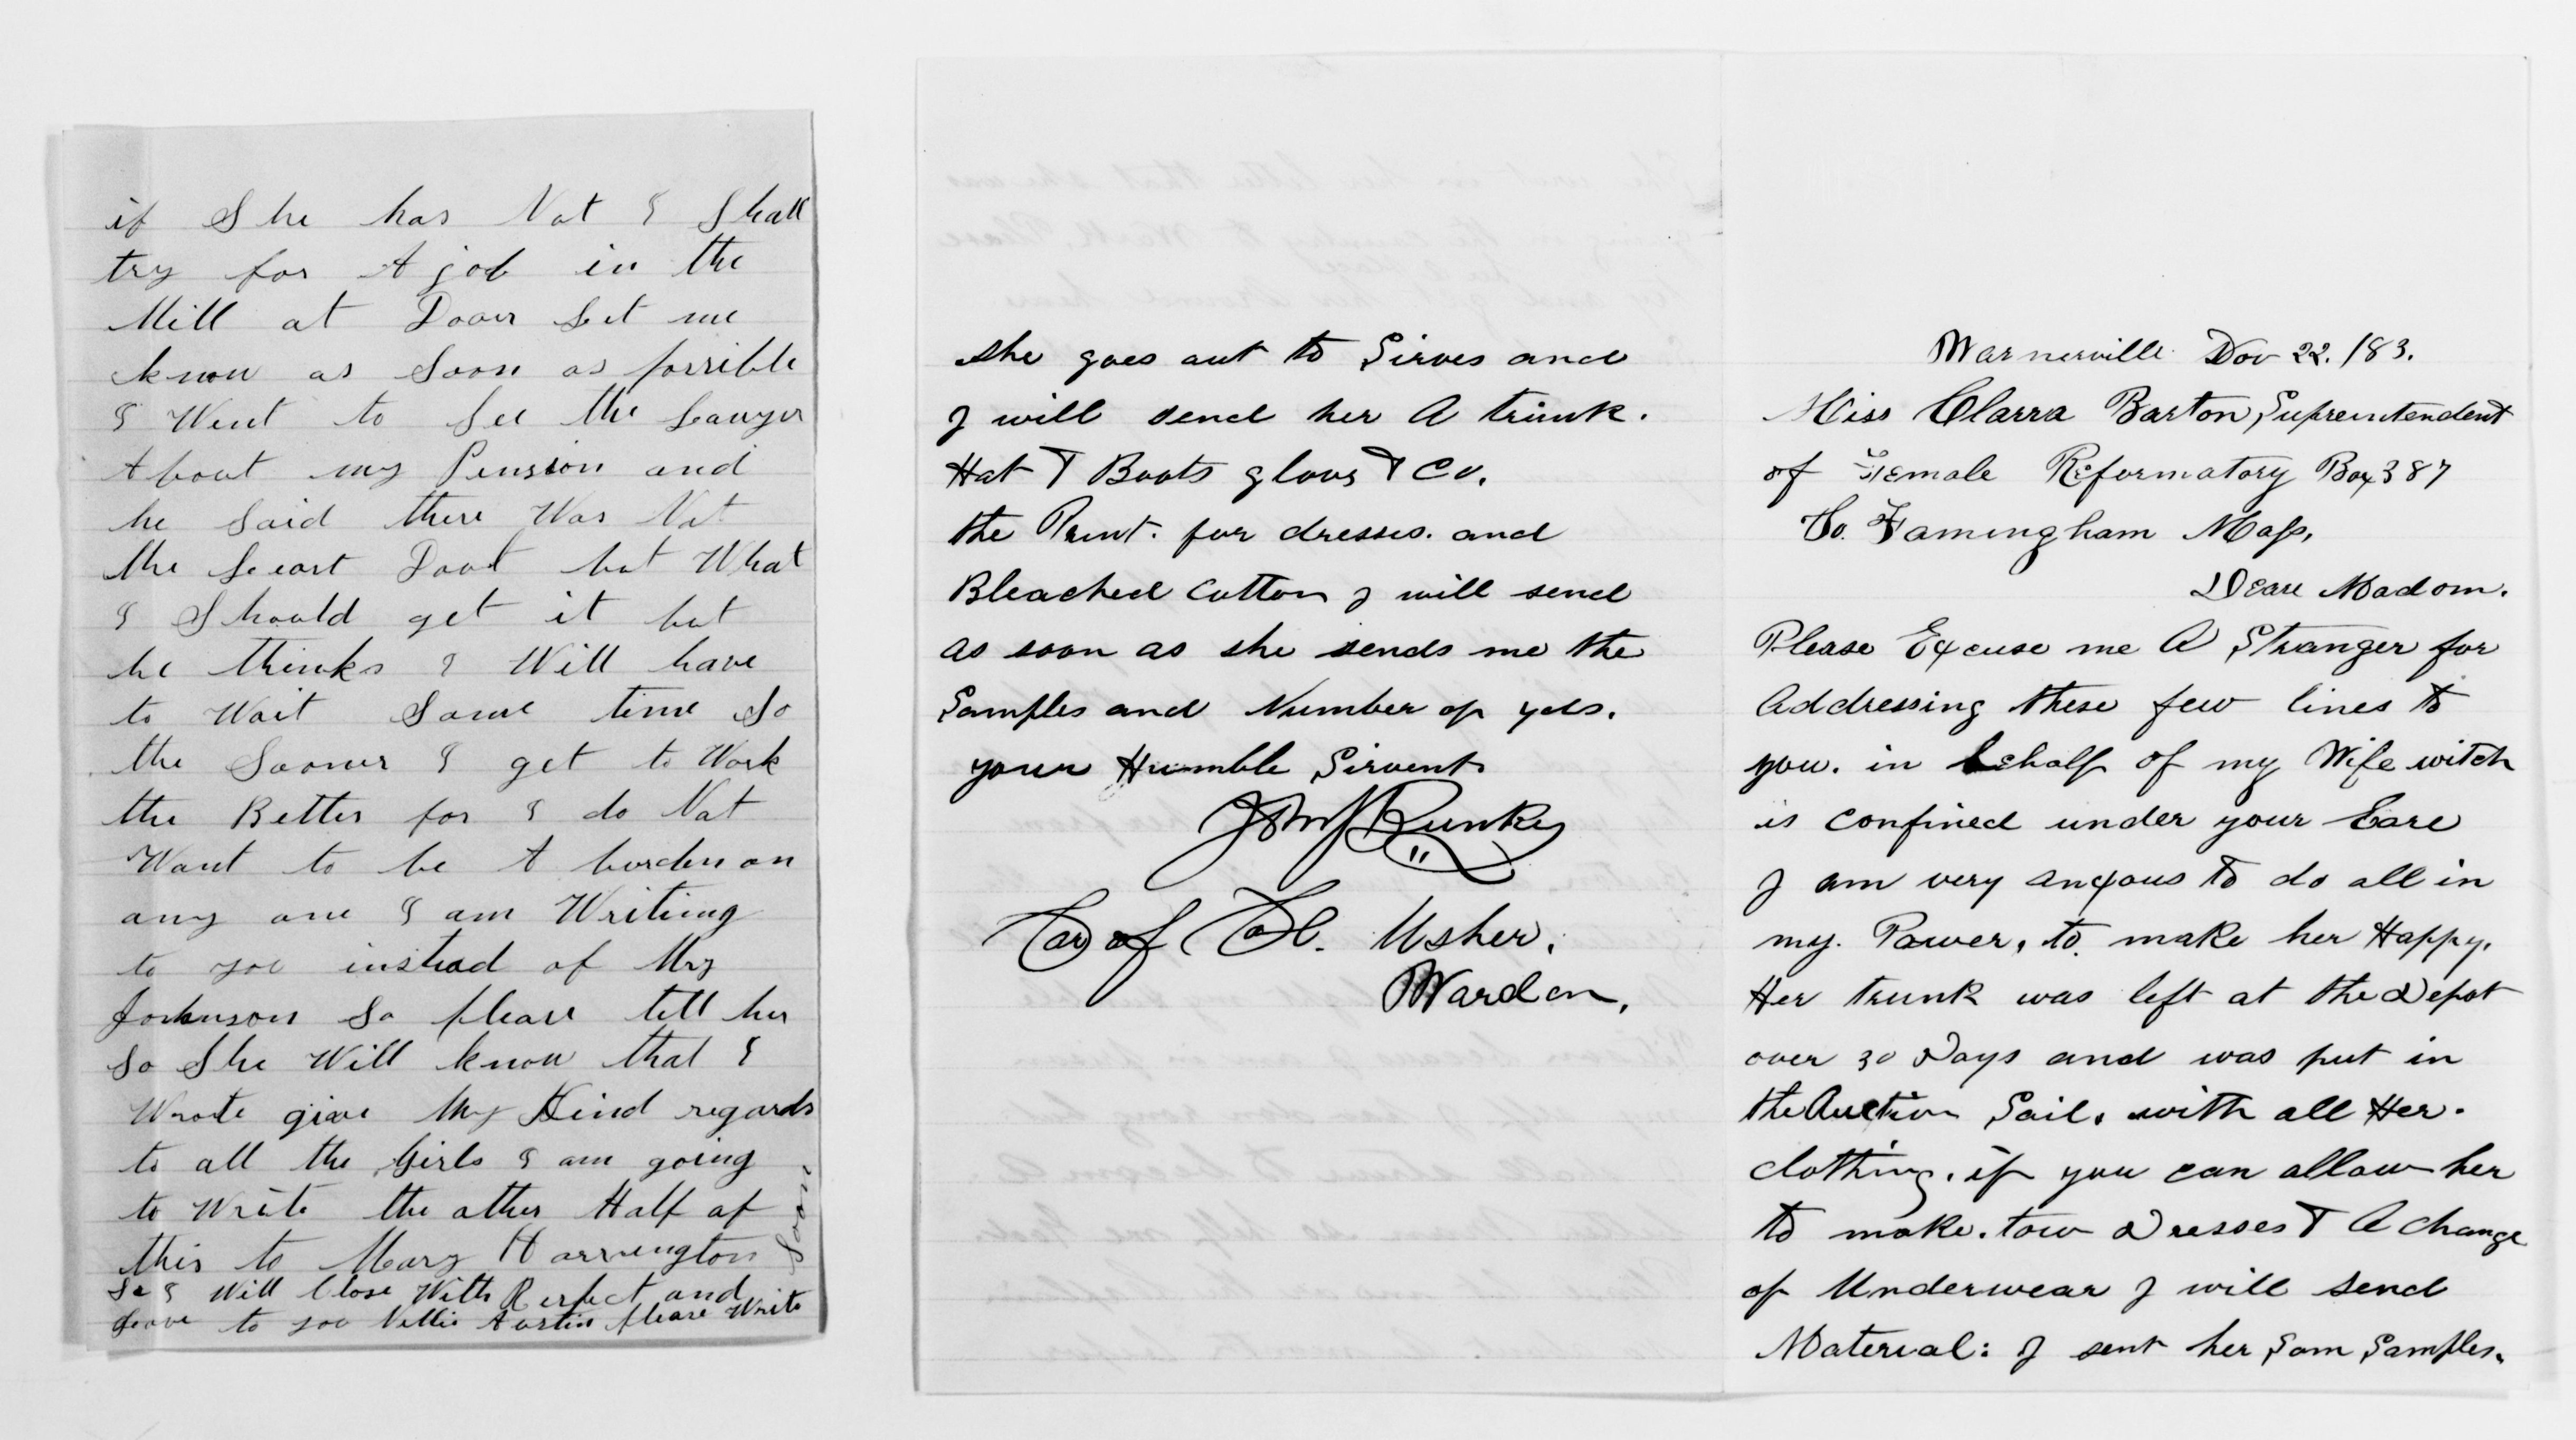 if She has Not I Shall
try for A job in the
Mill at Dover Let me
know as Soon as possible
I Went to See the Lawyer
About my Pension and
he Said there Was Not
the Least Dout but What
I Should get it but
he thinks I Will have
to Wait Some time So
the Sooner I get to Work
the Better for I do Not
Want to be A burden on
any one I am Writing
to you instead of Mrs
Johnson So please tell her
So She Will know that I
Wrote give My Kind regards
to all the Girls I am going
to Write the other Half of
this to Mary Harrington
So I Will Close With Respect and
Love to you Nellie Austin please Write
Soon
she goes out to Sirves and
I will send her A trunk.
Hat & Boots glovs & Co.
the Prent. for dresses. and
Bleached Cotton I will send
as soon as she sends me the
Samples and Number of yds.
your Humble Sirvent
John Runkey
Car of H. Usher.
Warden.
Warnerville Nov 22. /83.
Miss Clarra Barton, Supreintendent
of Female Reformatory Box 387
So. Framingham Mass.
Deare Madom.
Please Excuse me A Stranger for
Addressing these few lines to
you. in behalf of my Wife witch
is confined under your Care
I am very anxous to do all in
my. Power, to make her Happy.
Her trunk was left at the Depot
over 30 Days and was put in
the Auction Sail. with all Her.
clothing. if you can allow her
to make. tow Dresses & A change
of Underwear I will send
Material: I sent her Som Samples.